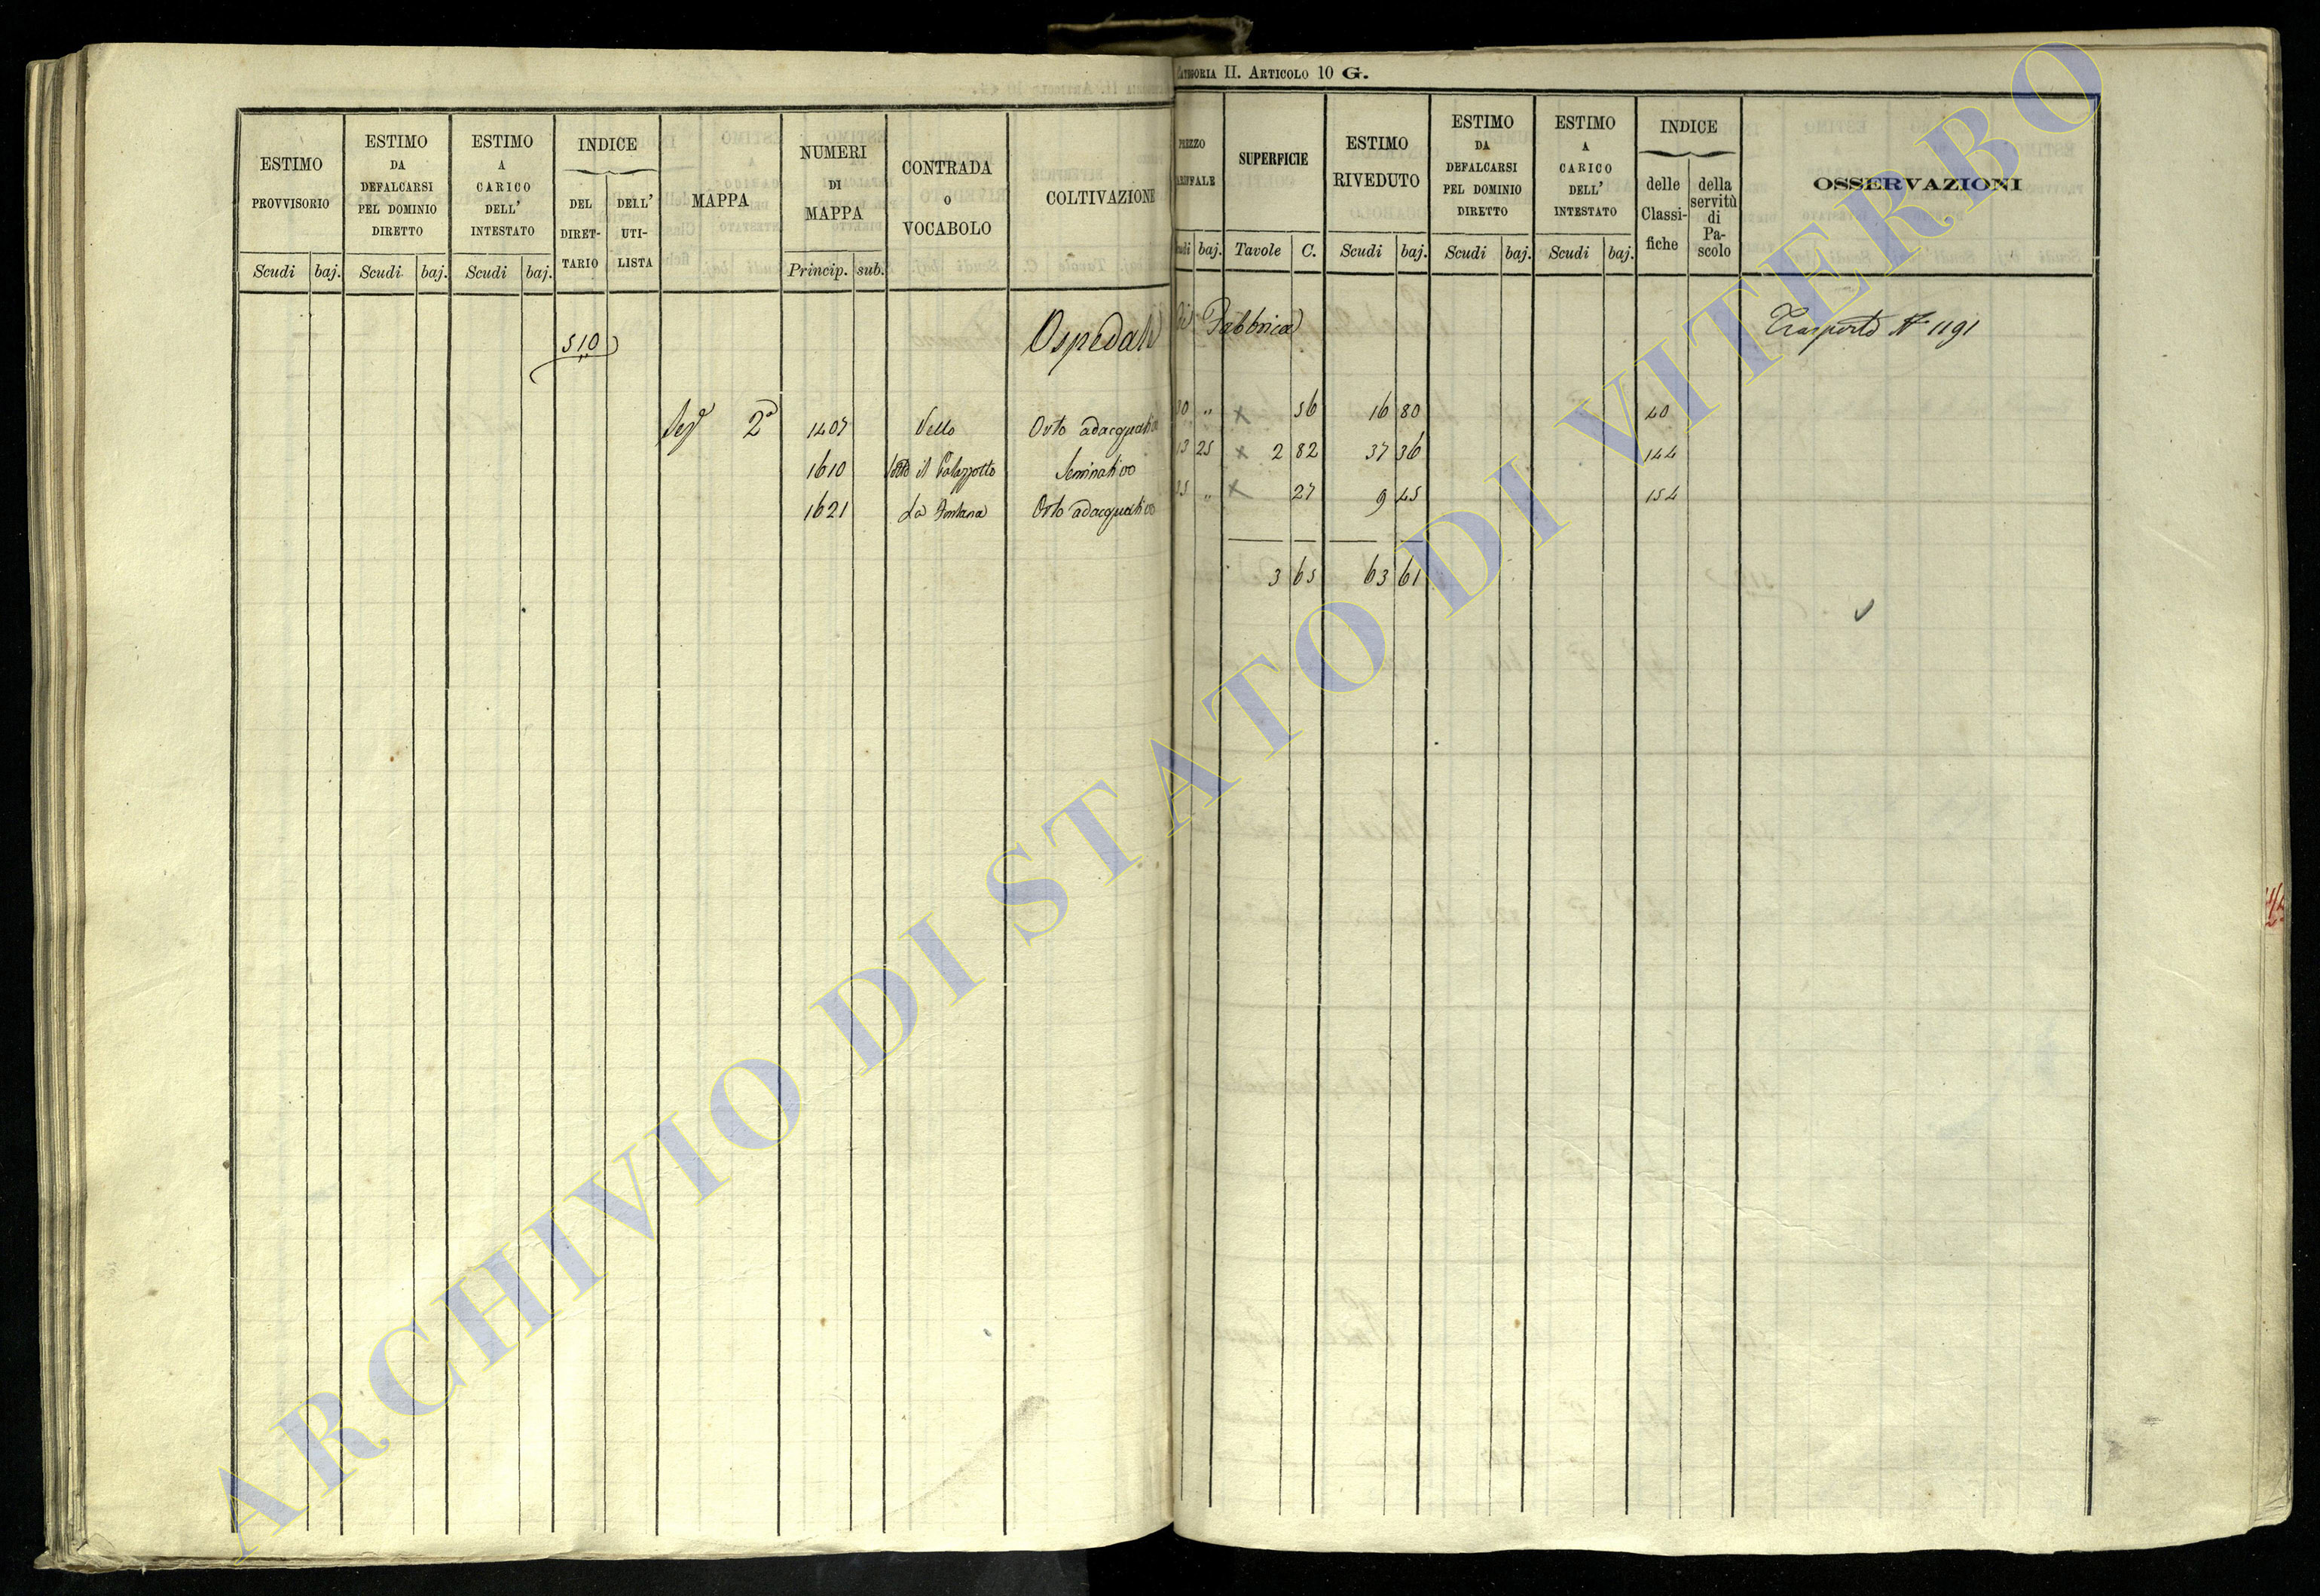 CATEGORIA II. ARTICOLO 10 G.
ESTIMO PROVVISORIO
Scudi baj.
ESTIMO DA DEFALCARSI PEL DOMINIO DIRETTO
Scudi baj.
ESTIMO A CARICO DELL' INTESTATO
Scudi baj.
INDICE
DEL DIRET-
TARIO
DELL' UTI-
LISTA
MAPPA
NUMERI DI MAPPA
Princip. sub.
CONTRADA O VOCABOLO
COLTIVAZIONE
PREZZO
baj.
SUPERFICIE
Tavole C.
ESTIMO RIVEDUTO
Scudi baj.
ESTIMO DA DEFALCARSI PEL DOMINIO DIRETTO
Scudi baj.
ESTIMO A CARICO DELL' INTESTATO
Scudi baj.
INDICE
delle Classi-
fiche
della servitù di Pa-
scolo
OSSERVAZIONI
510 Ospedale di Fabbrica Trasporto N 1191
2ª 1407 Vello Orto adacquativo 30 " x 56 16 80 40
1610 Sotto il Palazzotto Seminativo 13 25 x 2 82 37 36 144
1621 La Fontana Orto adacquativo 35 " x 27 9 45 154
3 65 63 61
ARCHIVIO DI STATO DI VITERBO